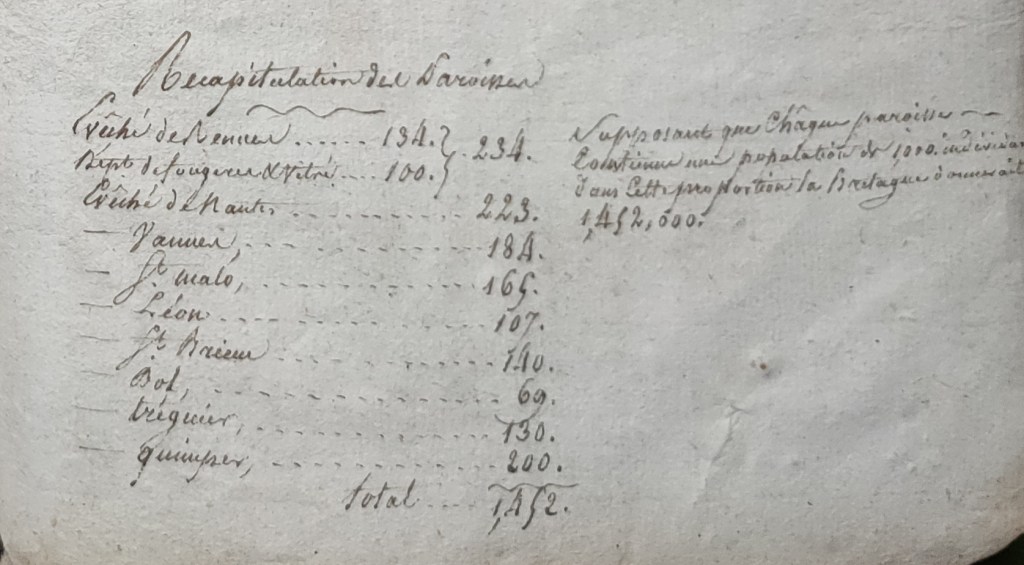 Recapitulation des Paroisses
Evêché de Rennes ...... 134.} 234.
Dept de fougeres & vitré .... 100.}
Evêché de Nantes ........ 223.
— Vannes, ........ 184.
— St. malo, ........ 165.
— Léon ........ 107.
— St. Brieuc ........ 140.
— Dol, ........ 69.
— tréguier, ........ 130.
— quimper, ........ 200.
total .... 1,452.
Supposant que Châque paroisse
Contienne une population de 1000. individus
dans Cette proportion la Bretagne donnerait
1,452,000.